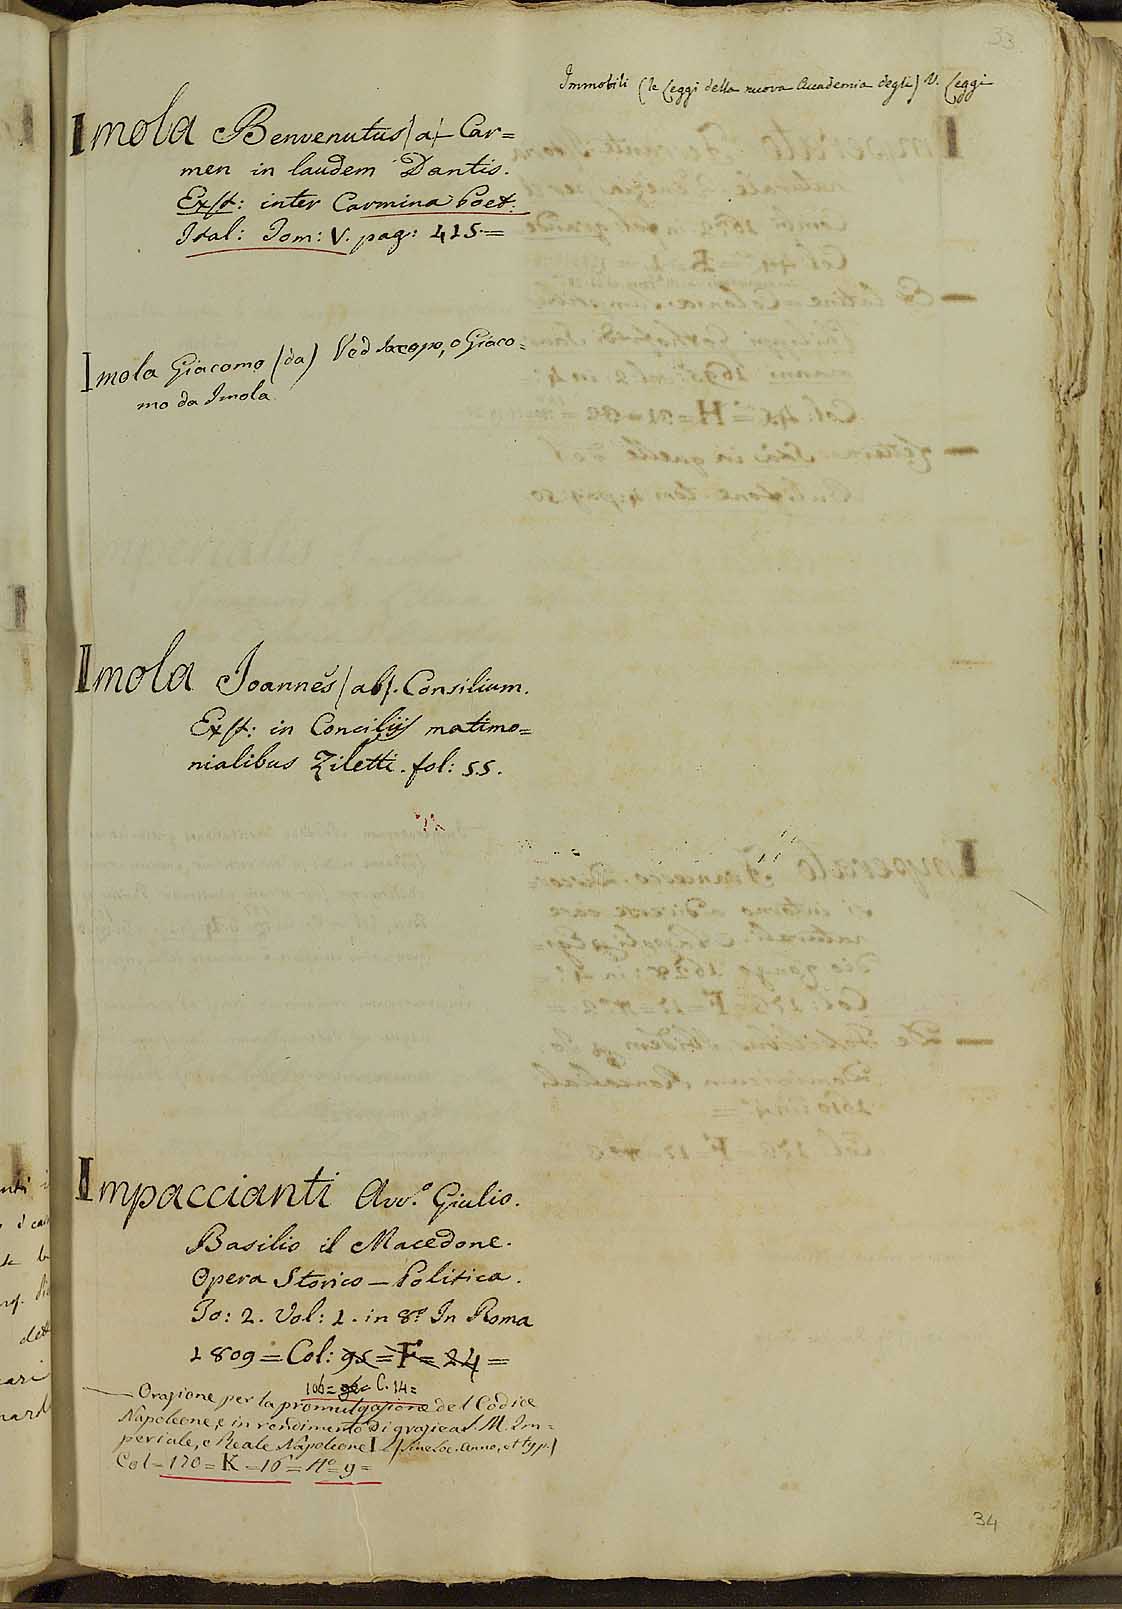 33
Immobili (le Leggi della nuova Accademia degli) V. Leggi
Imola Benvenutus (a) Car=
men in laudem Dantis.
Exst: inter Carmina Poet:
Ital: Tom: V. pag: 415.=
Imola Giacomo (da) Ved Jacopo, o Giaco=
mo da Imola
Imola Joannes (ab). Consilium.
Exst: in Conciliis matimo=
nialibus Ziletti. fol: 55.
Impaccianti Avv.º Giulio.
Basilio il Macedone.
Opera Storico - Politica.
To: 2. Vol: 1. in 8º In Roma
1809 = Col: 95 = F = 24 =
106 = C. 14 =
Orazione per la promulgazione del Codice
Napoleone, e in rendimento di grazie a S. M. Im=
periale, e Reale Napoleone I (sine Loc. Anno, et typ.)
Col = 170 = K = 16 = Nº 9 =
34